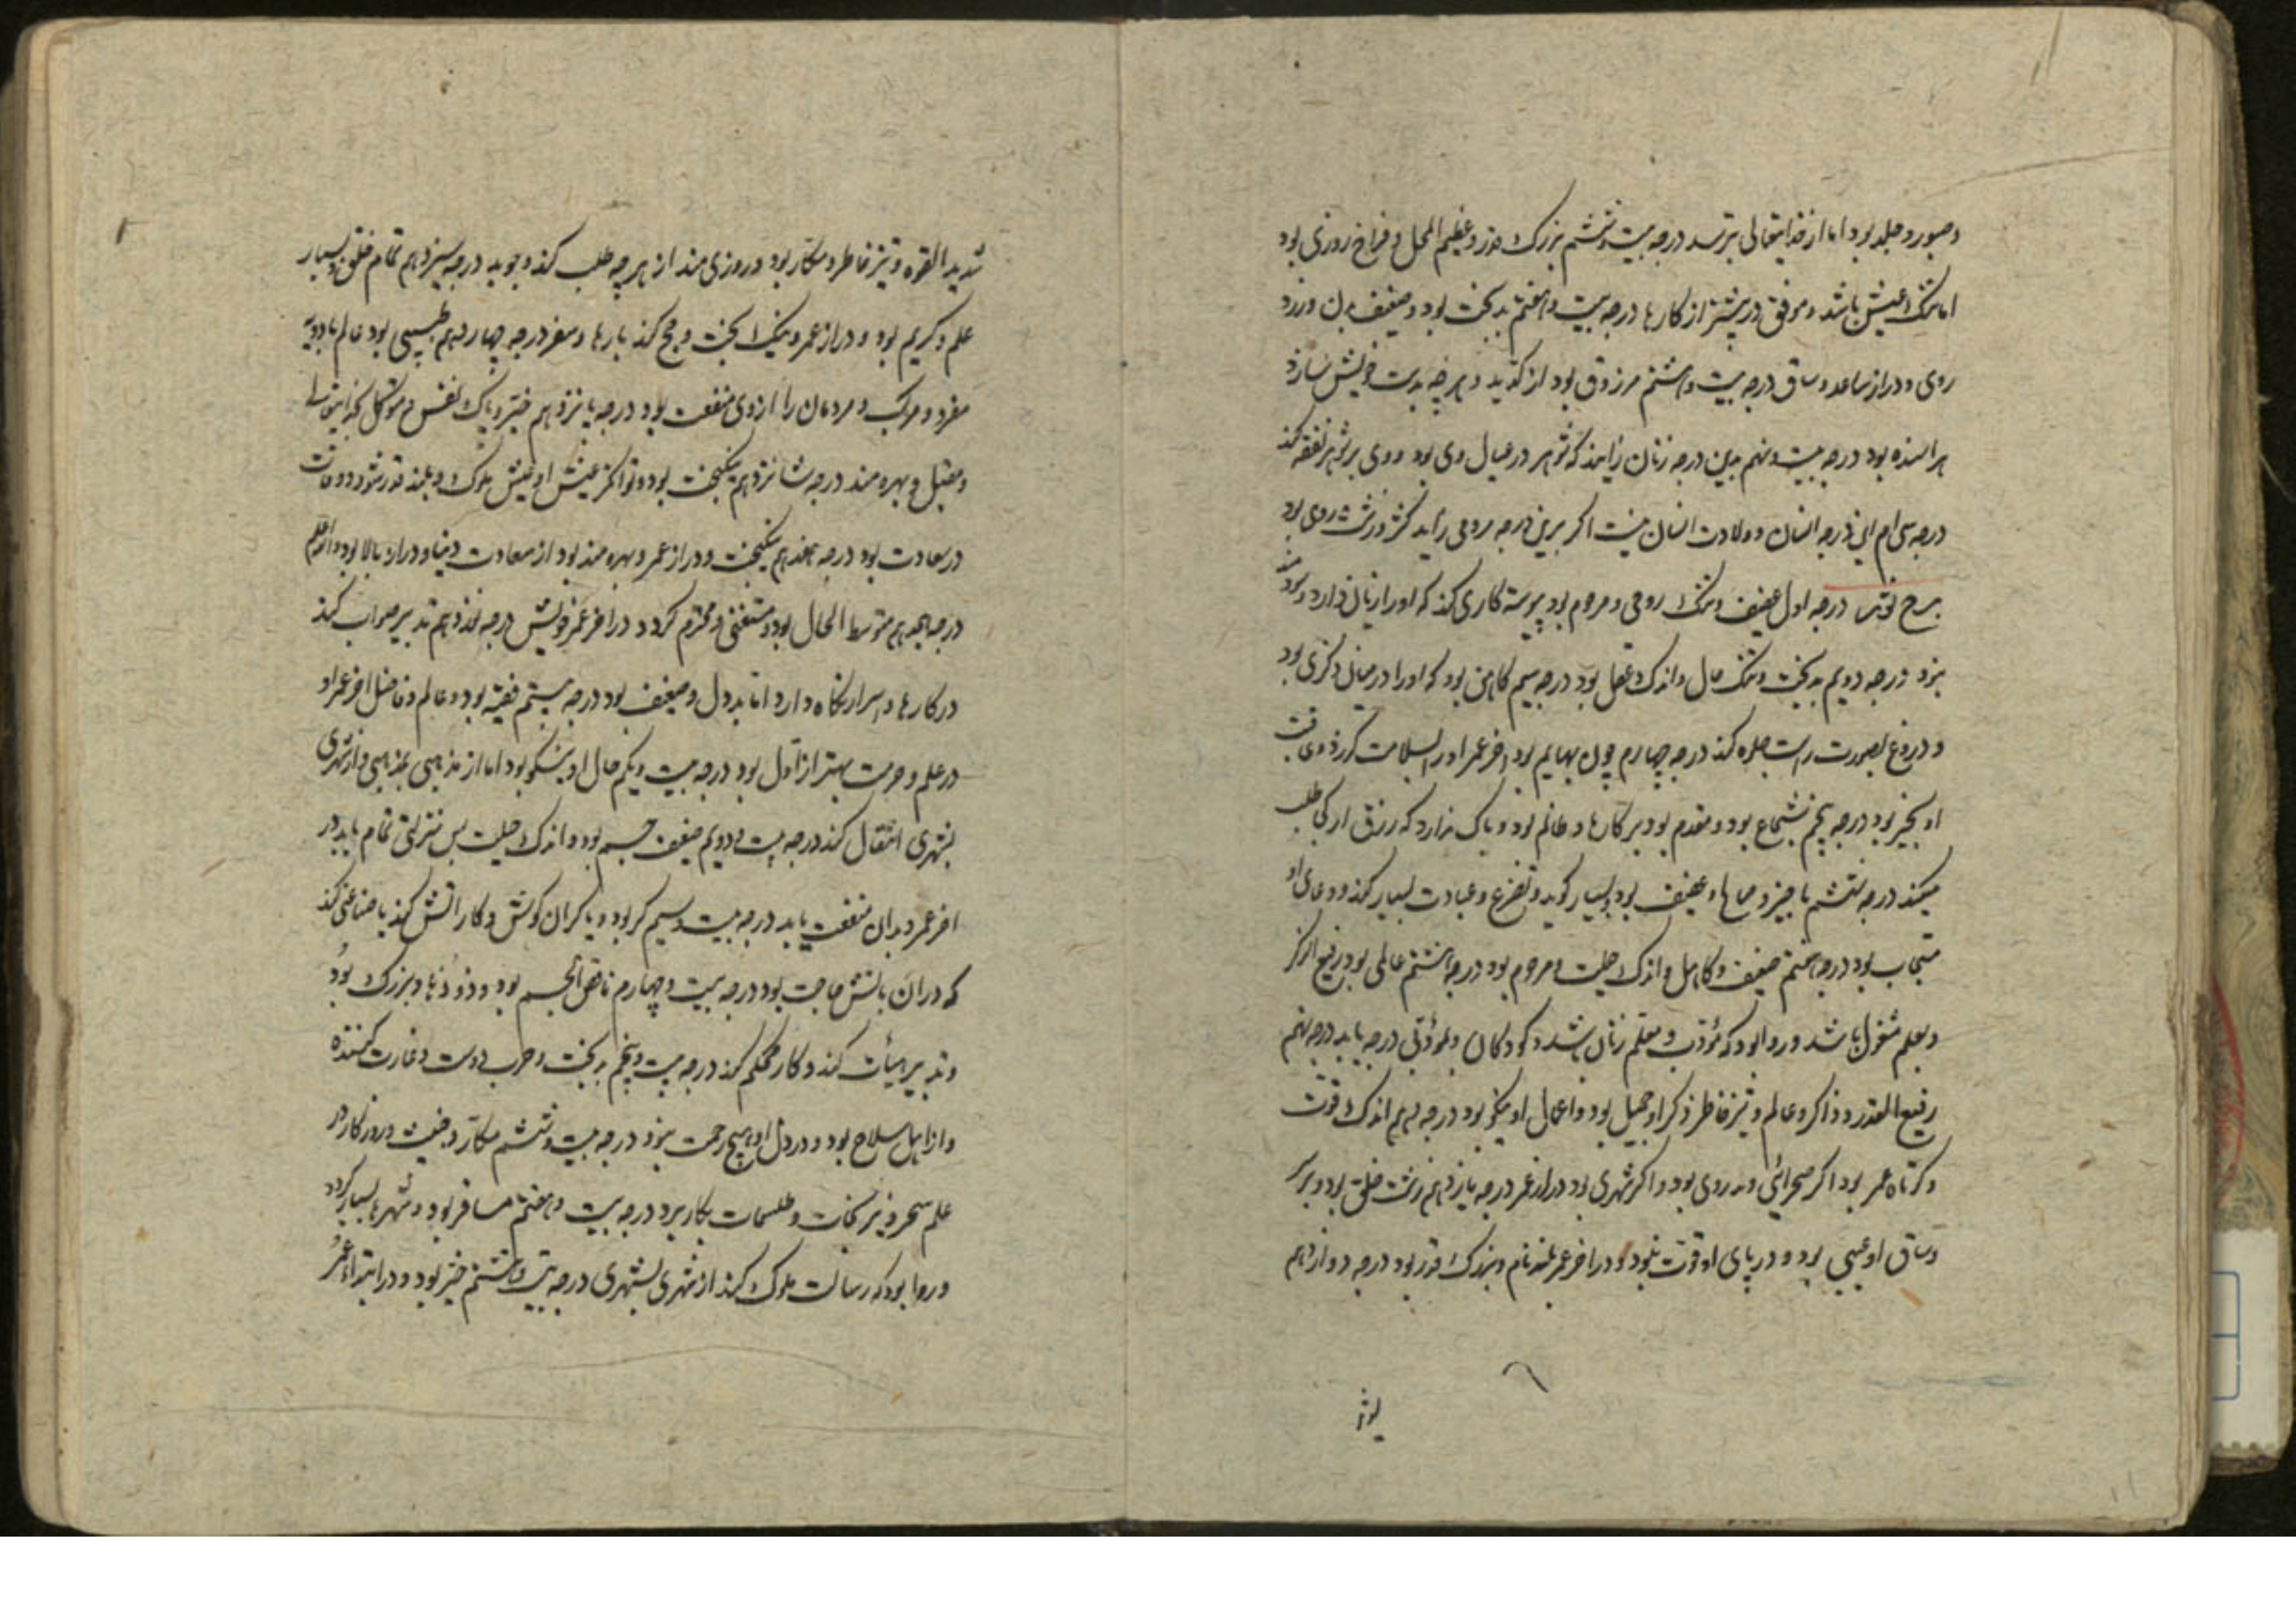 و صبور و جلد بود اما از خدایتعالی بترسد درجه بیست و ششم بزرک قدر و عظیم المحل و فراخ روزی بود
اما تنک عیش باشد و موفق در بیشتر از کارها درجه بیست و هفتم بدبخت بود و ضعیف بدن و زرد
روی و دراز ساعد و ساق درجه بیست و هشتم مرزوق بود از کد ید و هر چه بدست خویش سازد
درجه بیست و نهم بدین درجه زنان زایند که شوهر در عیال وی بود و وی بر شوهر نفقه کند
درجه سی ام این درجه انسان و ولادت انسان نیست اکر برین درجه مردمی زاید کژ و زشت روی بود
برج قوس درجه اول عفیف و تنک روحی و مرحوم بود پیوسته کاری کند که او را زیان دارد و
بزد درجه دویم بدبخت و تنک حال و اندک عقل بود درجه سیم کاهن بود که او را در میان ذکری بود
و دروغ بصورت راست جلوه کند درجه چهارم چون بهایم بود اخر عمر او بسلامت کذرد و عاقبت
او بخیر بود درجه پنجم شجاع بود و مقدم بود بر کارها و ظالم بود و باک ندارد که رزق از کی طلب
میکند درجه ششم با خیر و حیا و عفیف بود بسیار کوید و تضرع و عبادت بسیار کند و دعای او
مستجاب بود درجه هفتم ضعیف و کاهل و اندک حیلت و مرحوم بود درجه هشتم عالمی بود رفیع الذکر
و بعلم مشغول باشد و روا بود که مؤدب و معلم زنان باشد و کودکان و بمؤدبی درجه یابد درجه نهم
رفیع القدر و ذاکر و عالم و تیز خاطر ذکر او جمیل بود و اعمال او نیکو بود درجه دهم اندک قوت
و کوتاه عمر بود اکر صحرائی و بدوی بود و اکر شهری بود دراز عمر درجه یازدهم زشت خلق بود و بر سر
و ساق او عیبی بود و در پای او قوت نبود و در اخر عمر بلند نام و بزرک قدر بود درجه دوازدهم
شدید القوه و تیز خاطر و مکار بود و روزی مند از هر چه طلب کند و جوید درجه سیزدهم تمام خلق و بسیار
علم و کریم بود و دراز عمر و نیک بخت و حج کند بارها و سفر درجه چهاردهم طبیبی بود عالم بادویه
مفرد و مرکب و مردمان را از وی منفعت بود درجه پانزدهم خیر و پاک نفس و متوکل بخدایتعالی
و مقبل و بهره مند درجه شانزدهم نیکبخت بود و توانکر عیش او عیش ملوک و بلند قدر شود و وفات
در سعادت بود درجه هفدهم نیکبخت و دراز عمر و بهره مند بود از سعادت دنیا و دراز بالا بود
درجه هجدهم متوسط الحال بود و مستغنی و محترم کردد در اخر عمر خویش درجه نوزدهم تدبیر صواب کند
در کارها و اسرار نکاه دارد اما بددل و ضعیف بود درجه بیستم فقیه بود و عالم و فاضل اخر عمر او
در علم و حرمت بهتر از اول بود درجه بیست و یکم حال او نیکو بود اما از مذهبی بمذهبی و از شهری
بشهری انتقال کند درجه بیست و دویم ضعیف جسم بود و اندک حیلت پس منزلتی تمام یابد در
اخر عمر و بدان منفعت یابد درجه بیست و سیم کر بود و یا کران کوش و کار اتش کند یا صناعتی کند
که در ان باتش حاجت بود درجه بیست و چهارم ناقص الجسم بود و ذو دها و بزرک بود
و تدبیر هیأت کند و کار محکم کند درجه بیست و پنجم بدبخت و حرب دوست و غارت کننده
و از اهل سلاح بود و در دل او هیچ رحمت نبود درجه بیست و ششم مکار و خبیث و روزکار در
علم سحر و نیرنجات و طلسمات بکار برد درجه بیست و هفتم مسافر بود و شهرها بسیار کردد
و روا بود که رسالت ملوک کند از شهری بشهری درجه بیست و هشتم خیر بود و در ابتداء عمر